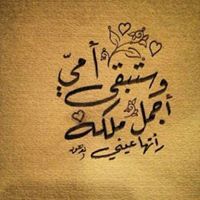 وستبقى أمي
أجمل ملكه
رأتها عيني